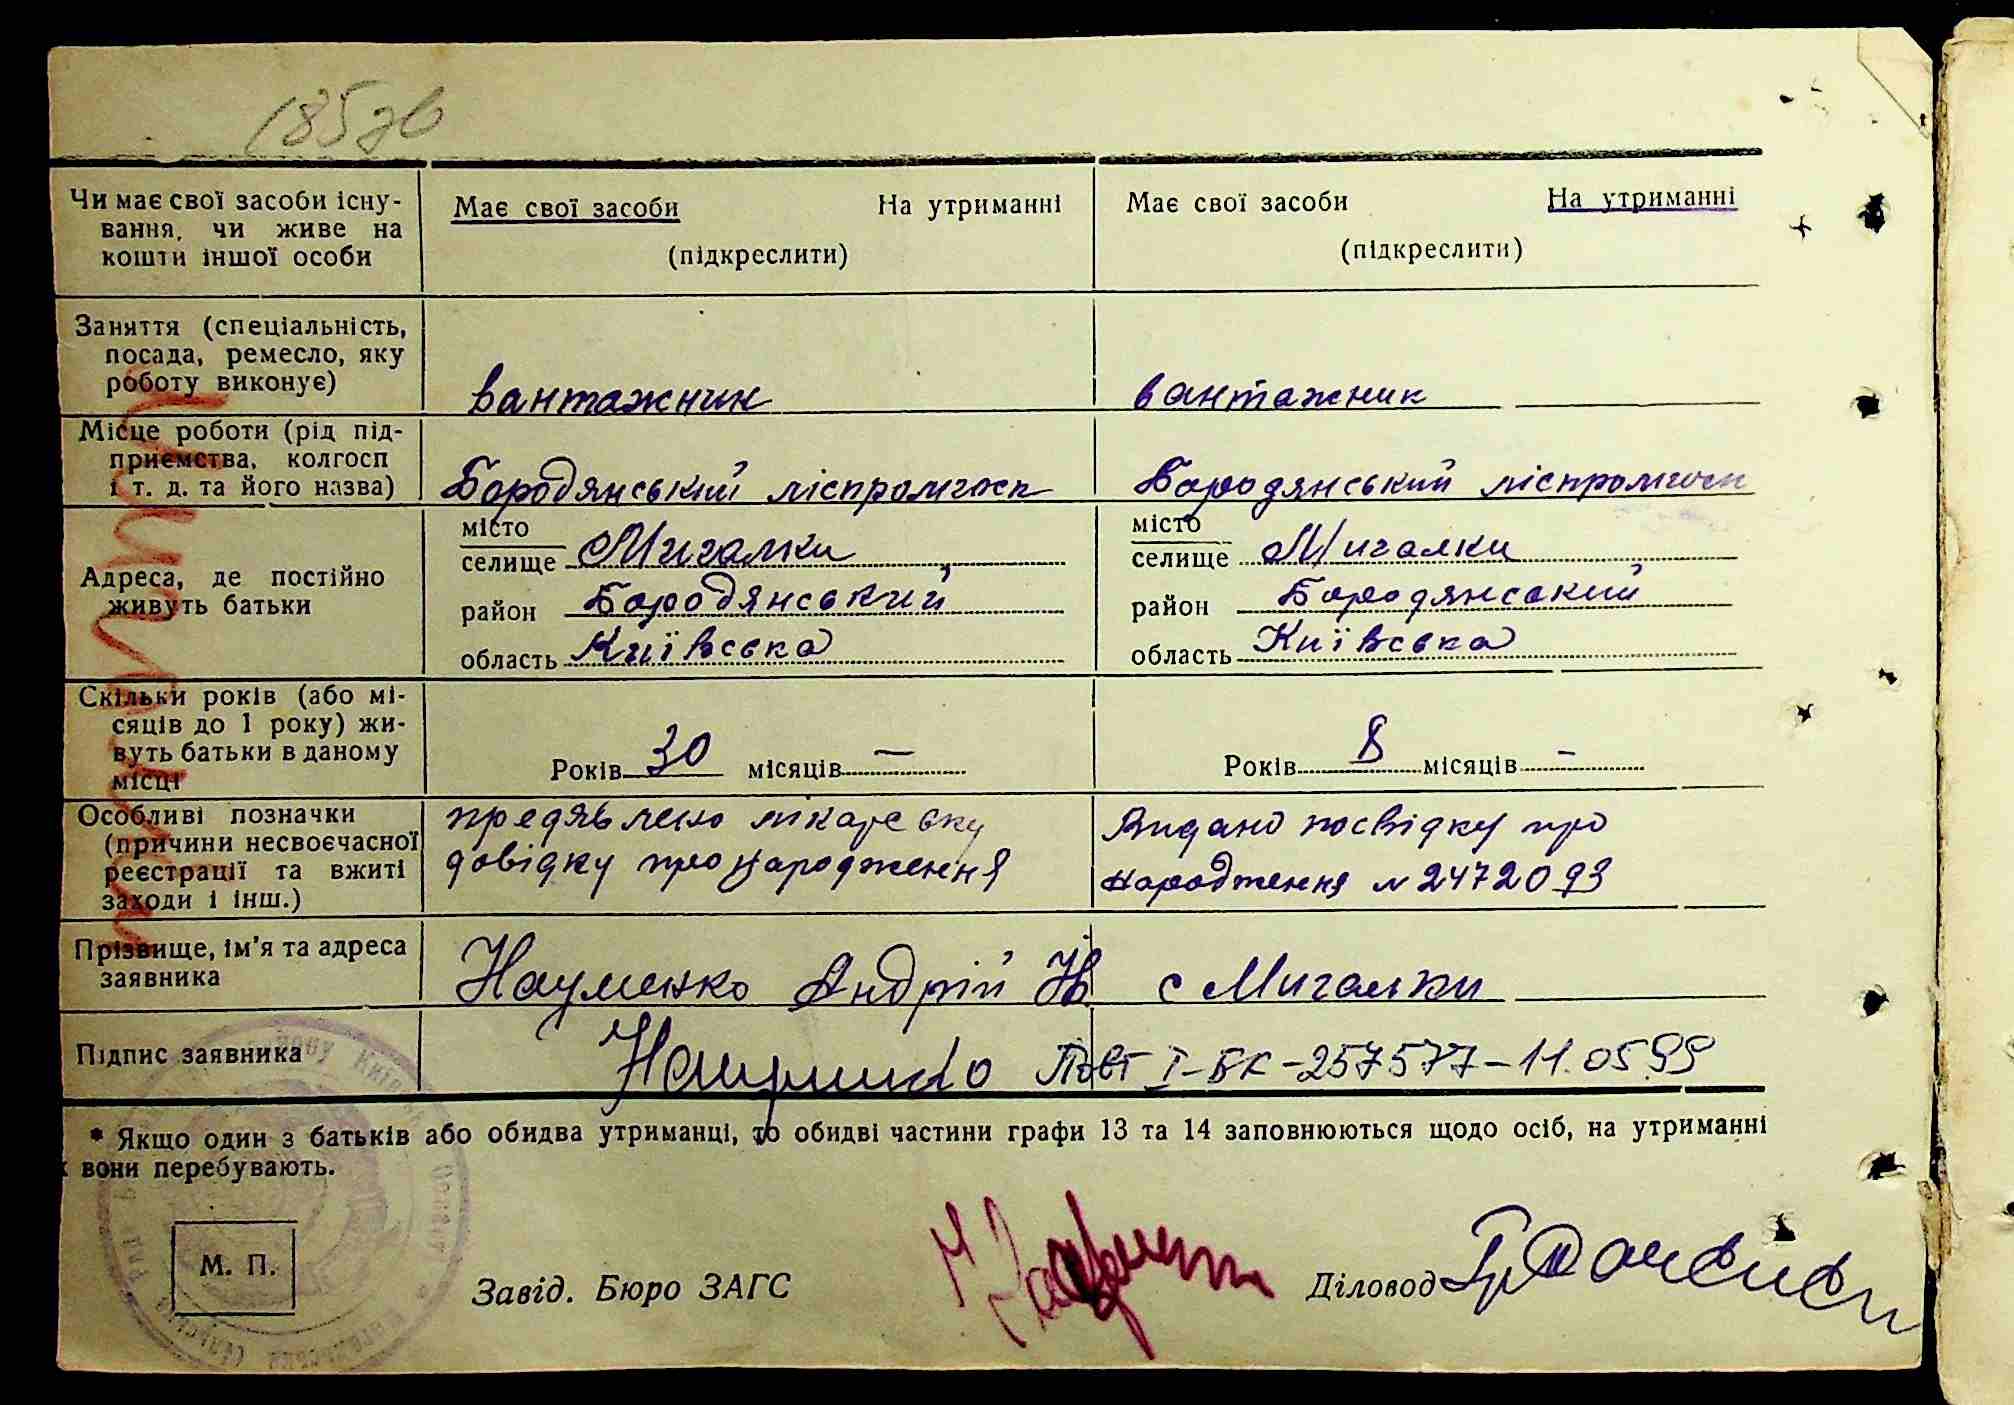 185зв
Чи має свої засоби існу-
вання, чи живе на
кошти іншої особи
Має свої засоби На утриманні
(підкреслити)
Має свої засоби На утриманні
(підкреслити)
Заняття (спеціальність,
посада, ремесло, яку
роботу виконує)
вантажник
вантажник
Місце роботи (рід під-
приємства, колгосп
і т. д. та його назва)
Бородянський ліспромгосп
Бородянський ліспромгосп
Адреса, де постійно
живуть батьки
місто
селище Мигалки
район Бородянський
область Київська
місто
селище Мигалки
район Бородянський
область Київська
Скільки років (або мі-
сяців до 1 року) жи-
вуть батьки в даному
місці
Років 30 місяців —
Років 8 місяців —
Особливі позначки
(причини несвоєчасної
реєстрації та вжиті
заходи і інш.)
предявлено лікарську
довідку про народження
Видано посвідку про
народження № 2472093
Прізвище, ім'я та адреса
заявника
Науменко Андрій Н с Мигалки
Підпис заявника
Науменко Повт І-БК-257577-11.05.99
* Якщо один з батьків або обидва утриманці, то обидві частини графи 13 та 14 заповнюються щодо осіб, на утриманні
вони перебувають.
М. П.
Завід. Бюро ЗАГС
Діловод